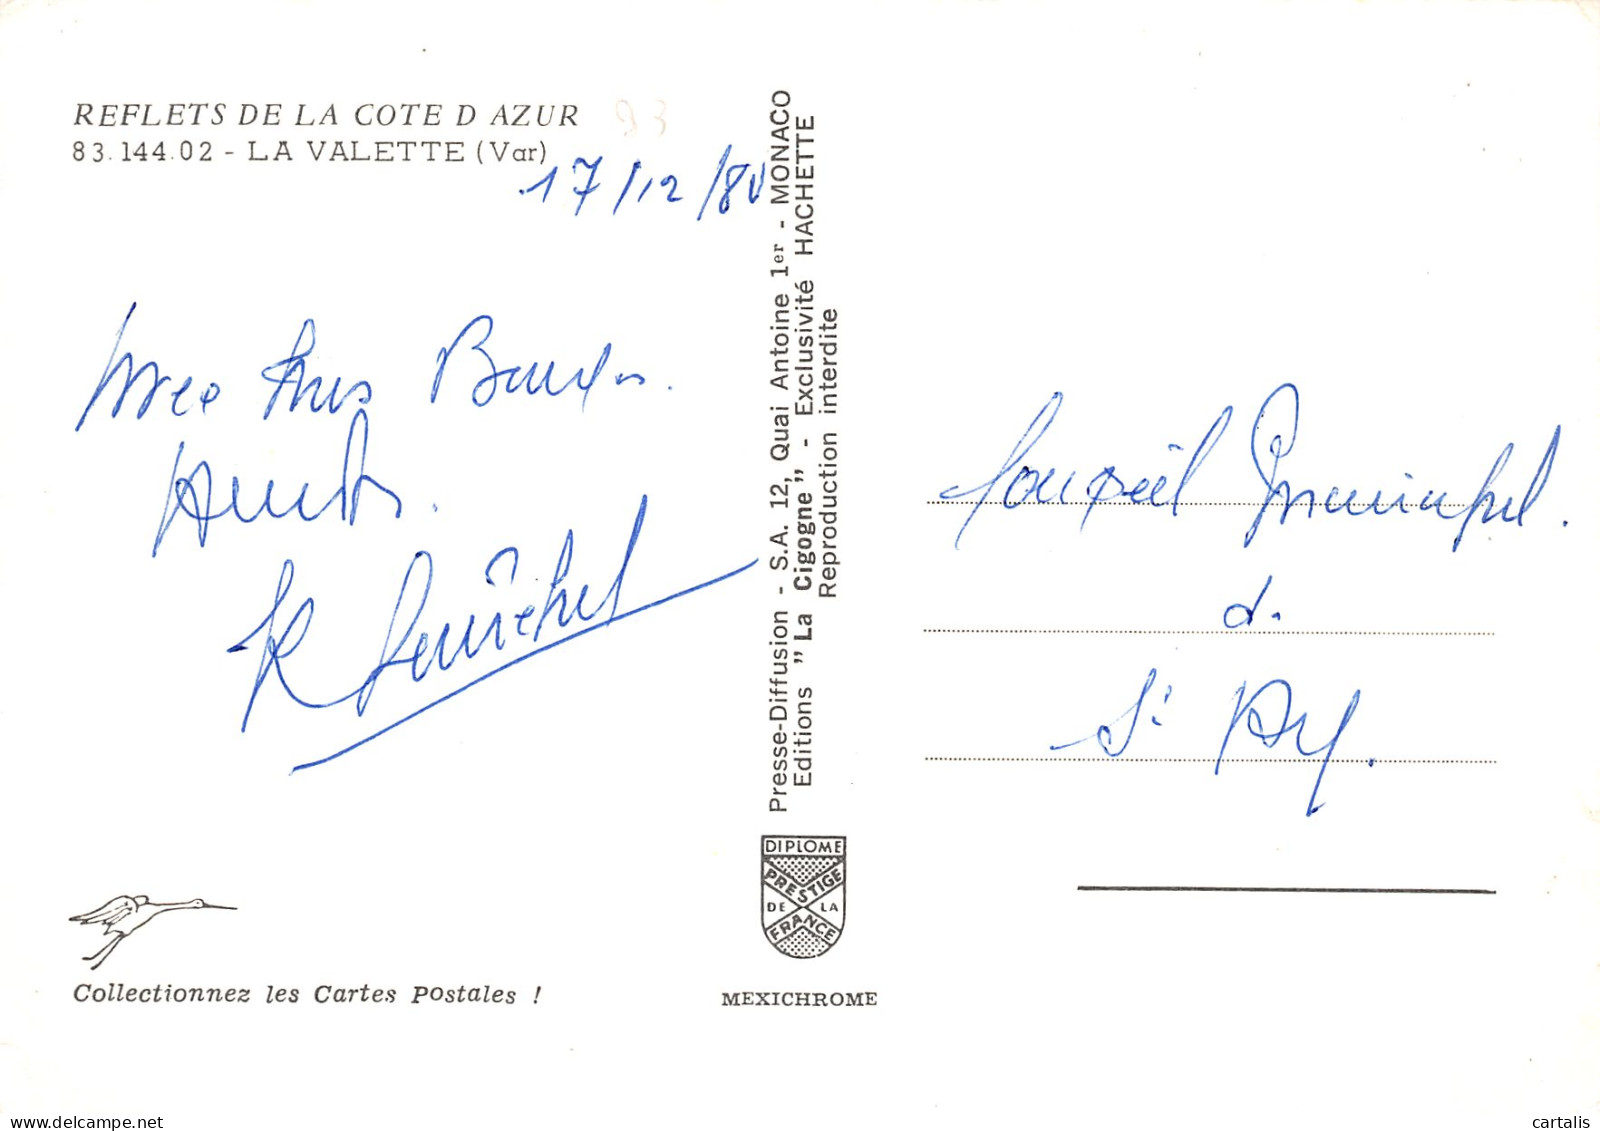 REFLETS DE LA COTE D AZUR
83.144.02 - LA VALETTE (Var)
17/12/80
Avec tres Bonnes
Presse-Diffusion - S.A. 12, Quai Antoine 1er - MONACO
Editions "La Cigogne" - Exclusivité HACHETTE
Reproduction interdite
Conseil Municipal.
d.
St
DIPLOME
PRESTIGE
DE LA
FRANCE
Collectionnez les Cartes Postales !
MEXICHROME
delcampe.net
cartalis